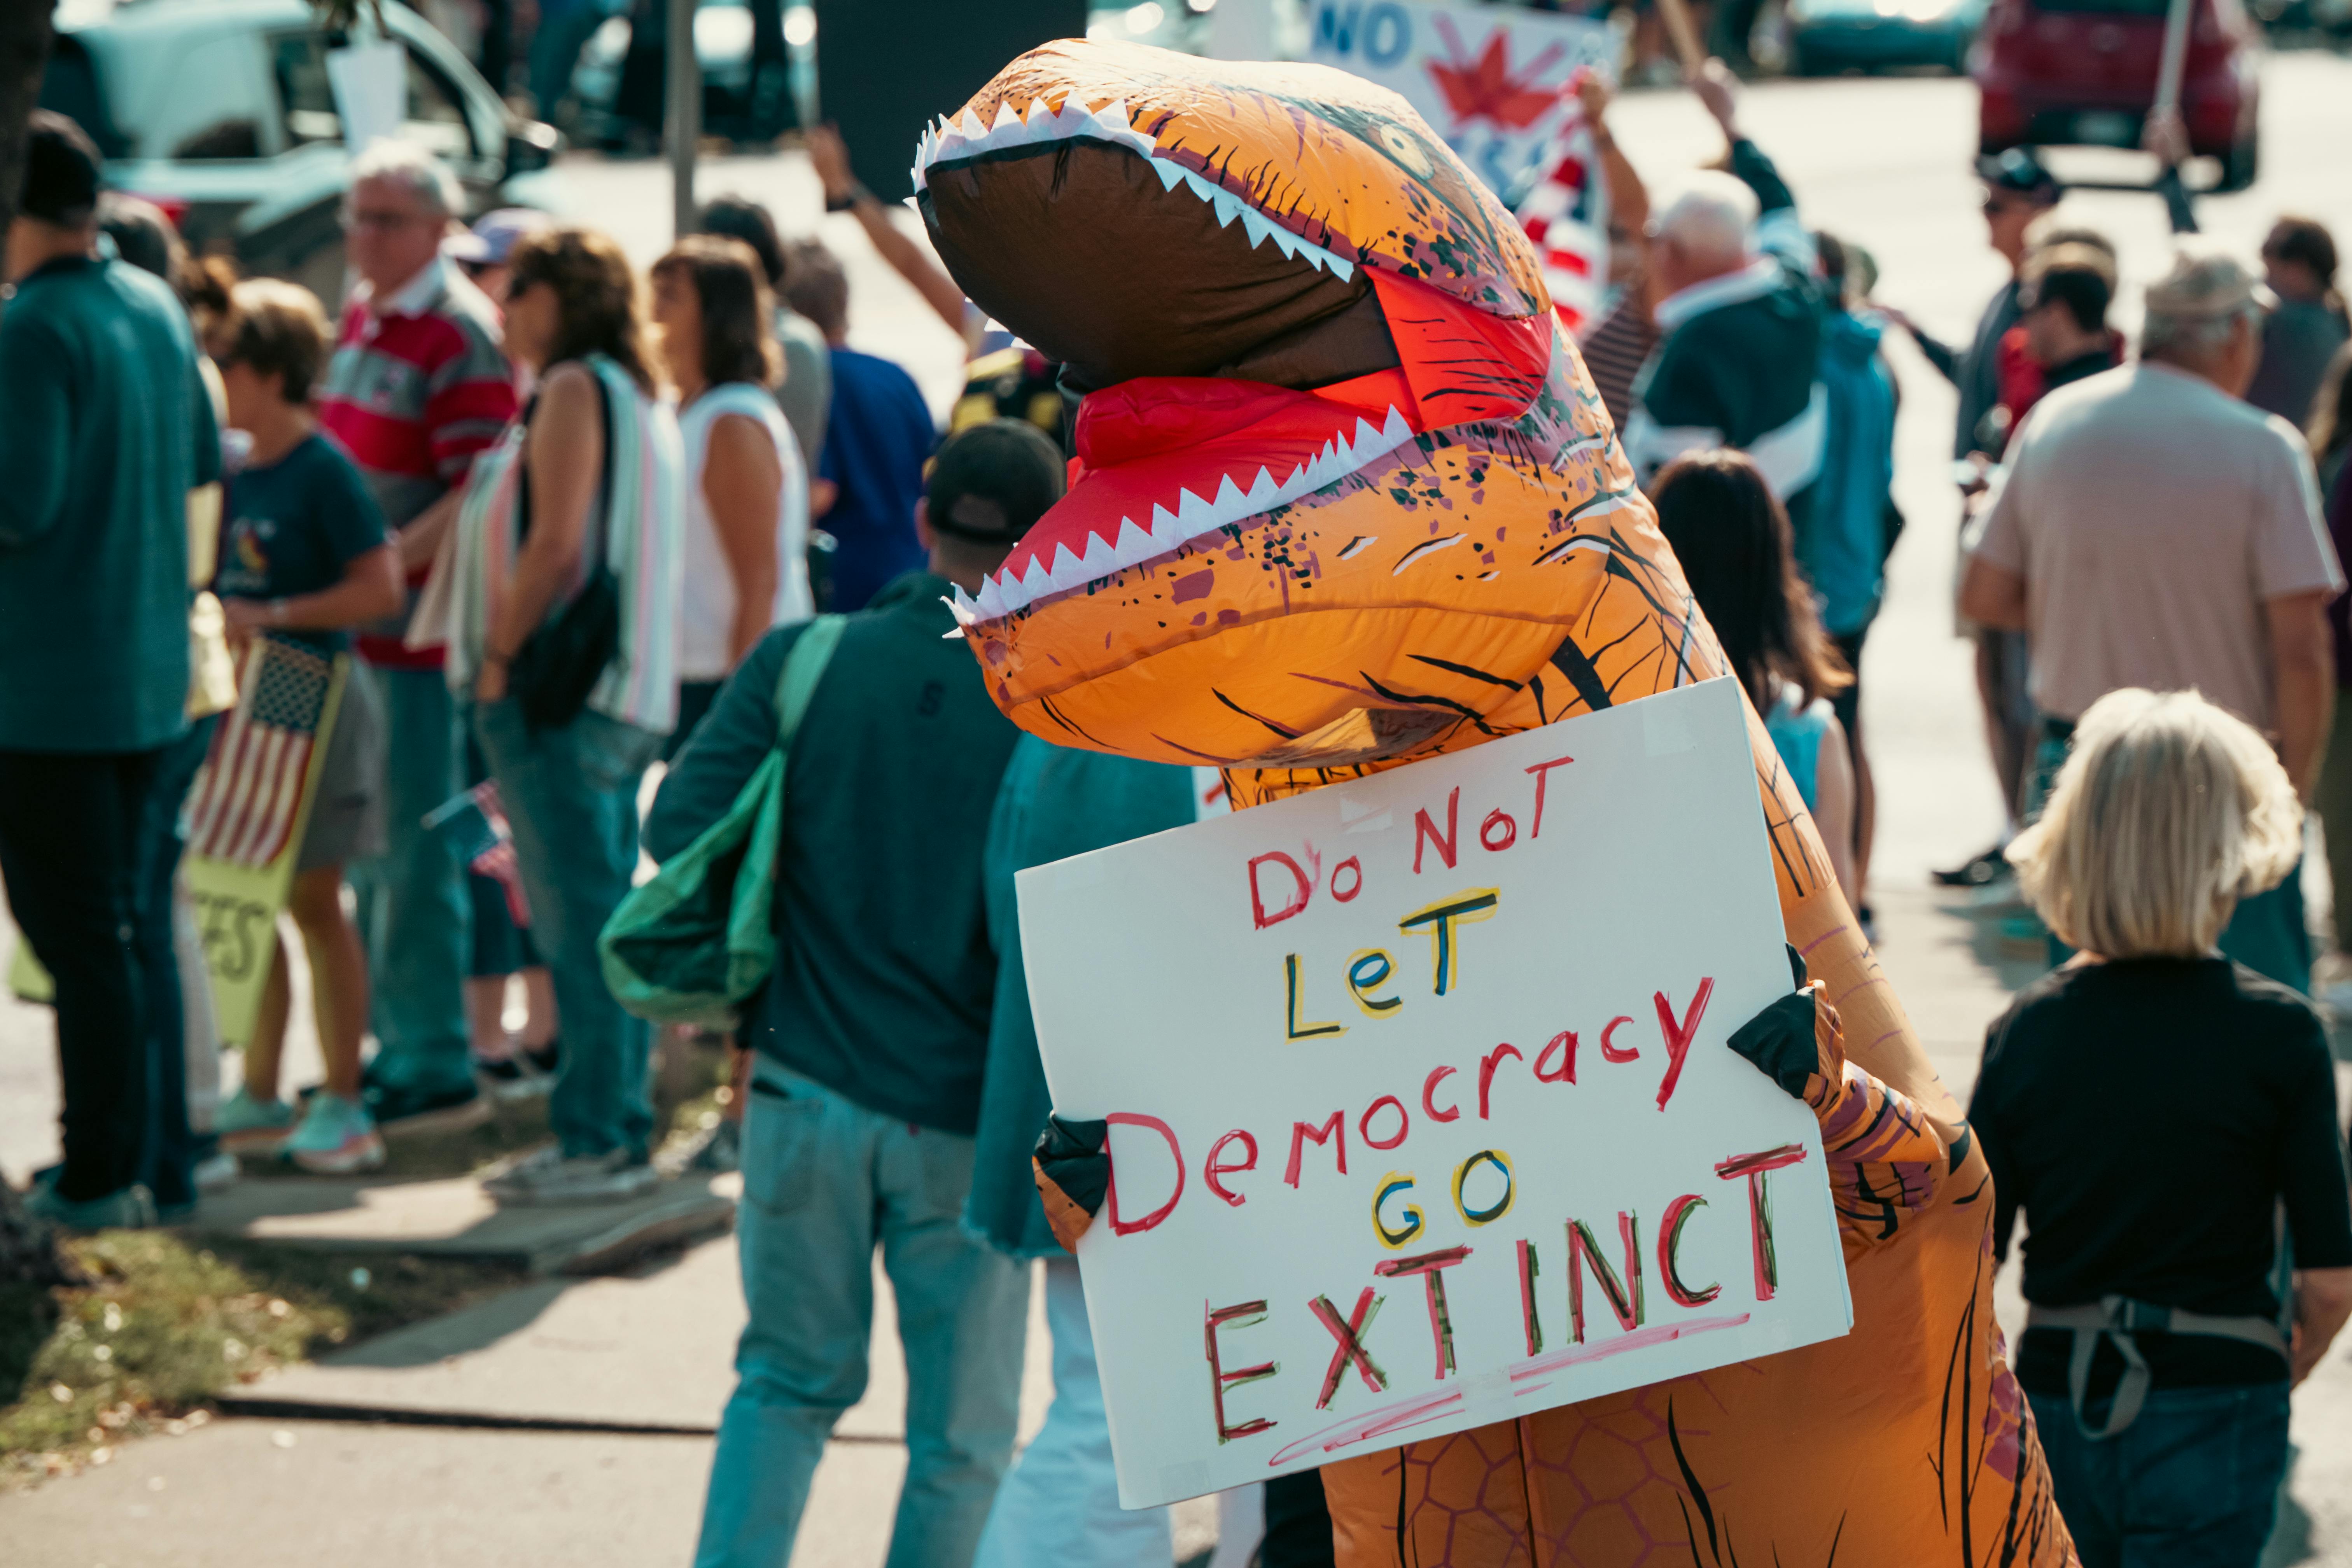 NO
Do NoT
LeT
Democracy
GO
EXTINCT